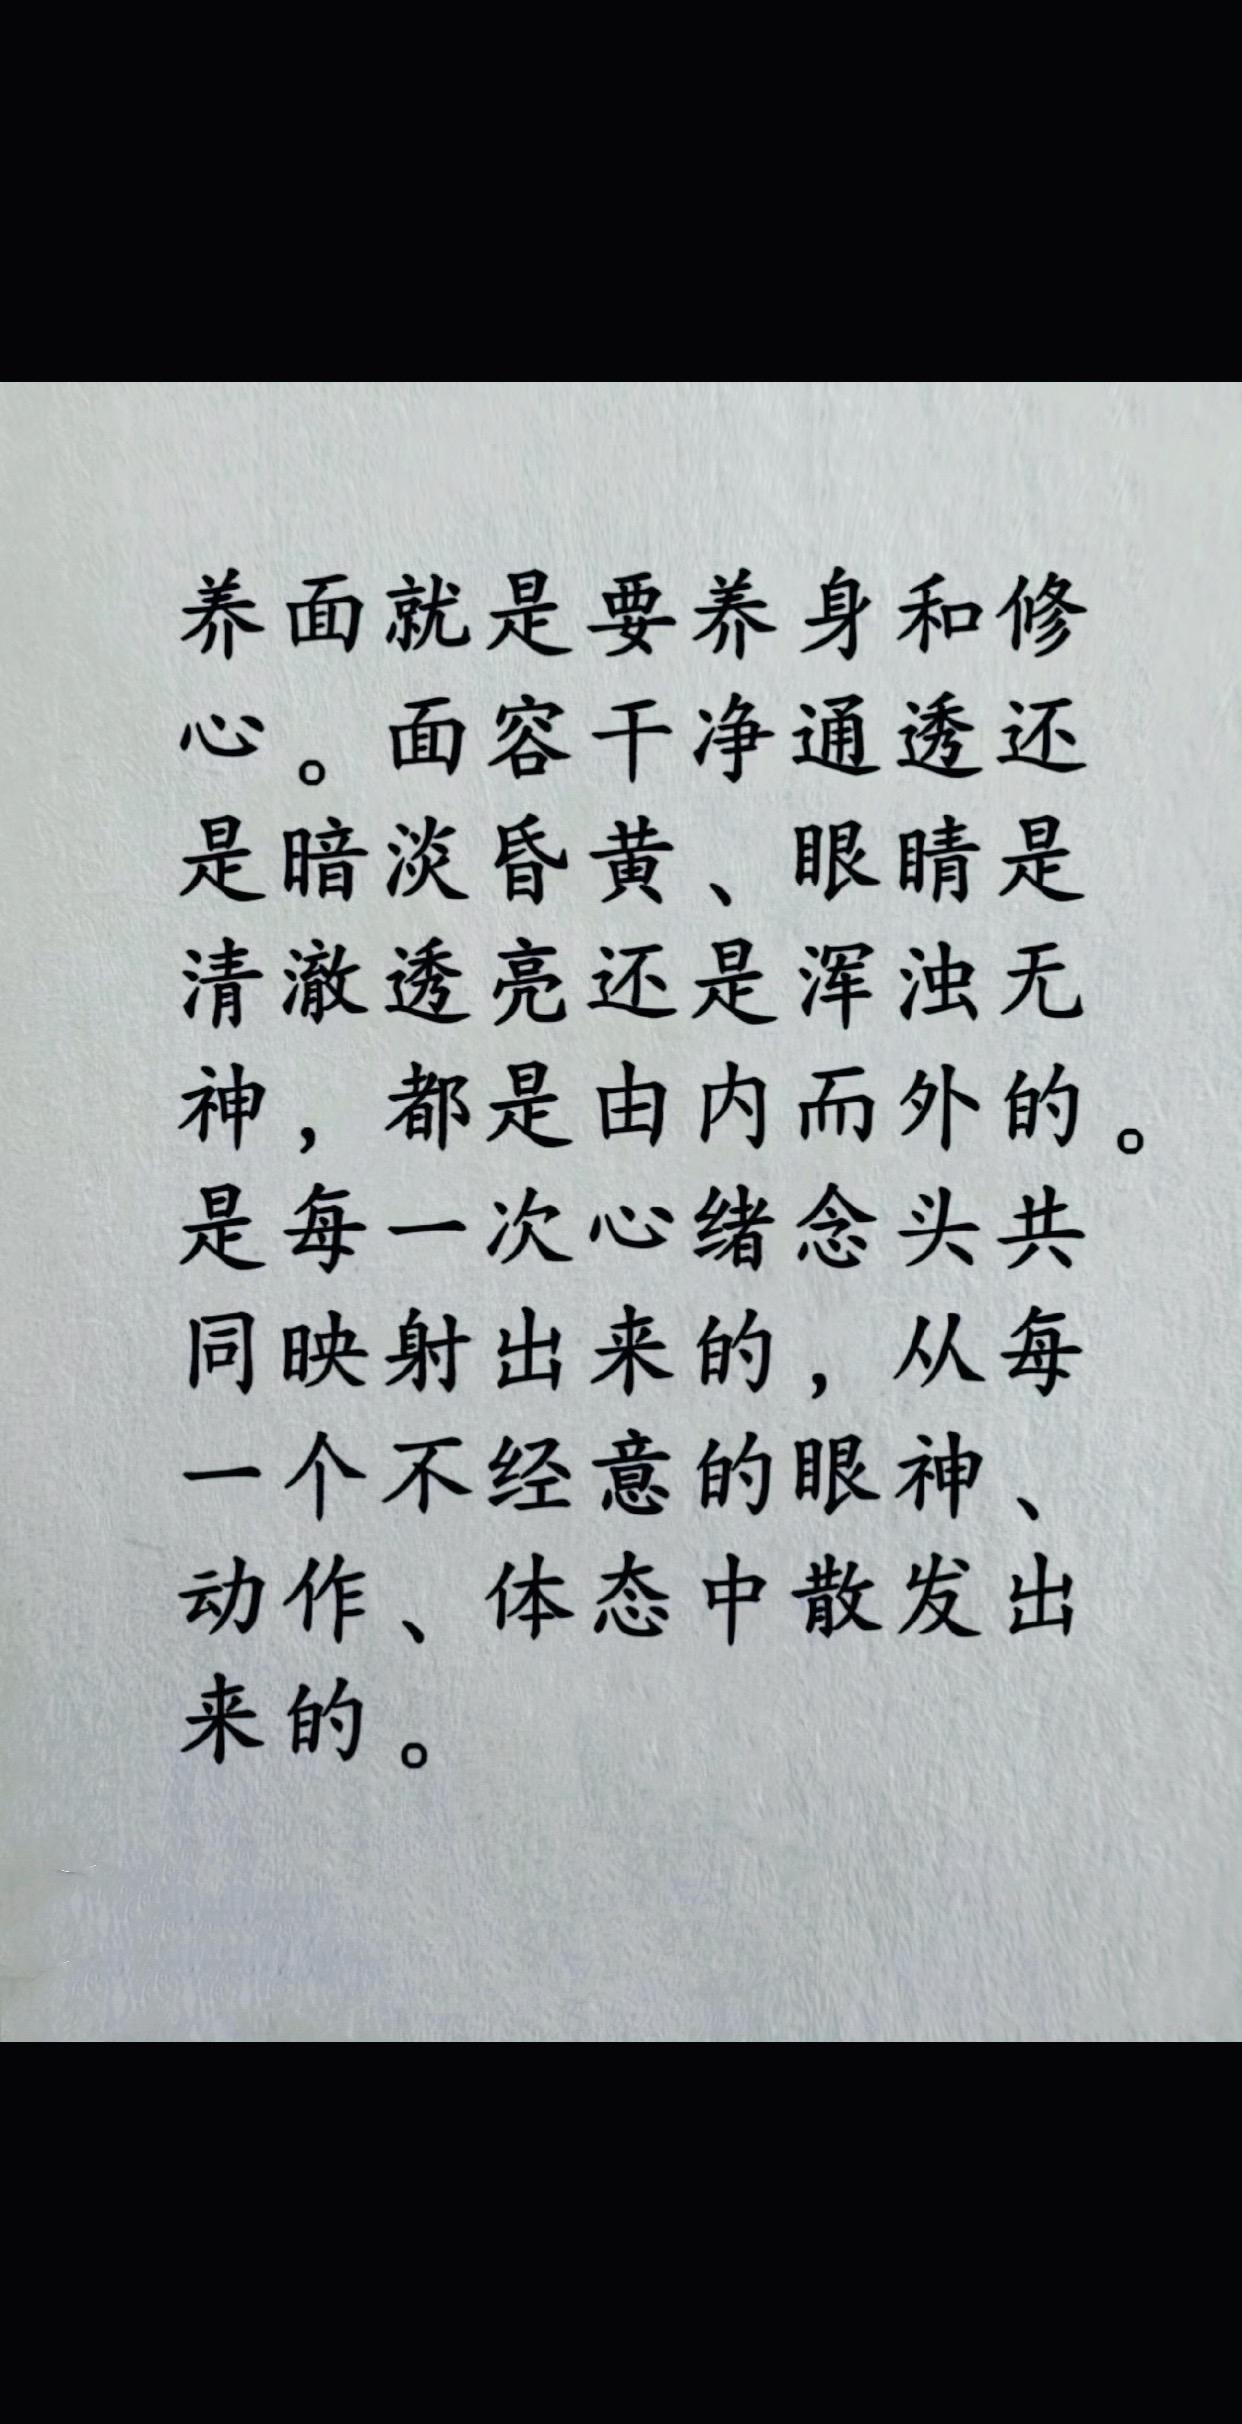 养面就是要养身和修
心。面容干净通透还
是暗淡昏黄、眼睛是
清澈透亮还是浑浊无
神，都是由内而外的。
是每一次心绪念头共
同映射出来的，从每
一个不经意的眼神、
动作、体态中散发出
来的。